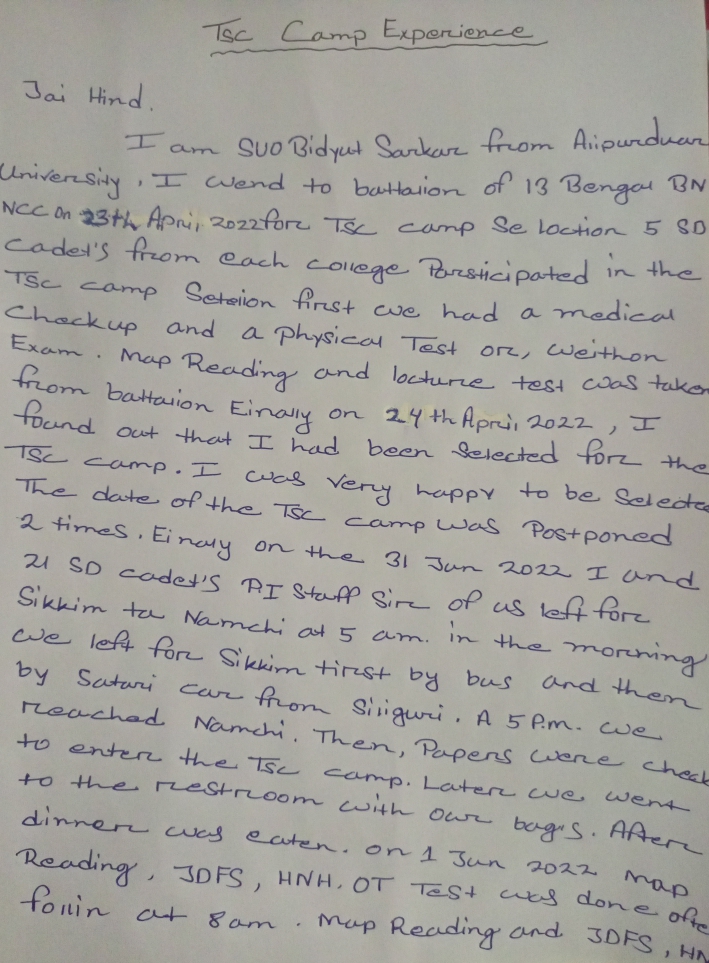 Tsc Camp Experience
Jai Hind.
I am SUO Bidyut Sarkar from Alipurduar
University, I wend to battalion of 13 Bengal BN
NCC On 23th April 2022 for Tsc camp Se loction 5 SD
cadet's from each college Parsticipated in the
TSC camp Seteiion first we had a medical
Checkup and a Physical Test or, weithon
Exam. Map Reading and locture test was taken
from battalion Einally on 24th April 2022, I
found out that I had been Selected for the
TSC camp. I was very happy to be Selected
The date of the TSC camp was Postponed
2 times. Einaly on the 31 Jun 2022 I and
21 SD cadet's P.I Staff Sir of us left for
Sikkim to Namchi at 5 am. in the morning
we left for Sikkim tirst by bus and then
by Satari car from Siliguri. A 5 P.m. we
reached Namchi. Then, Papers were check
to enter the Tsc camp. Later we went
to the restroom with our bags. After
dinner was eaten. on 1 Jun 2022 map
Reading, JDFS, HNH. OT Test was done ofte
follin at 8am. Map Reading and JDFS, HN